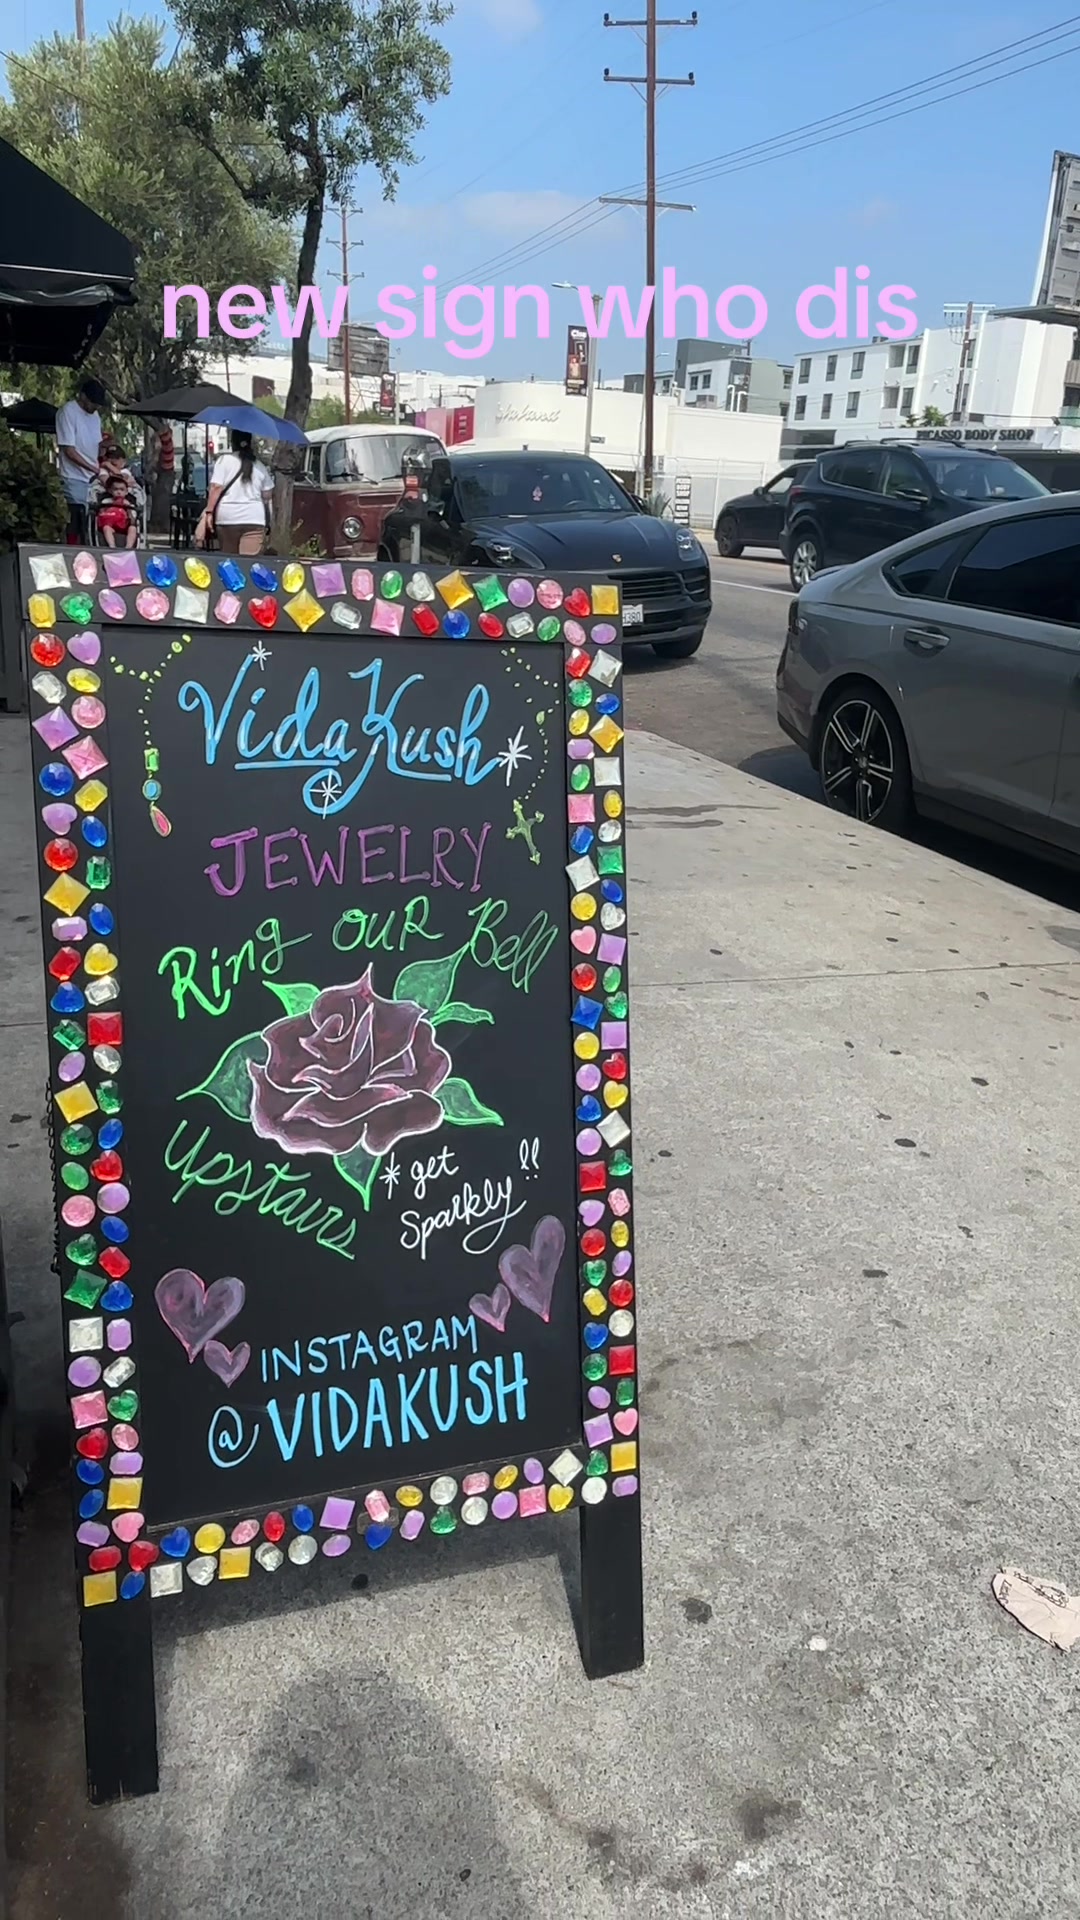 new sign who dis
PICASSO BODY SHOP
VidaKush
JEWELRY
Ring OUR Bell
Upstairs
*get
Sparkly!!
INSTAGRAM
@VIDAKUSH